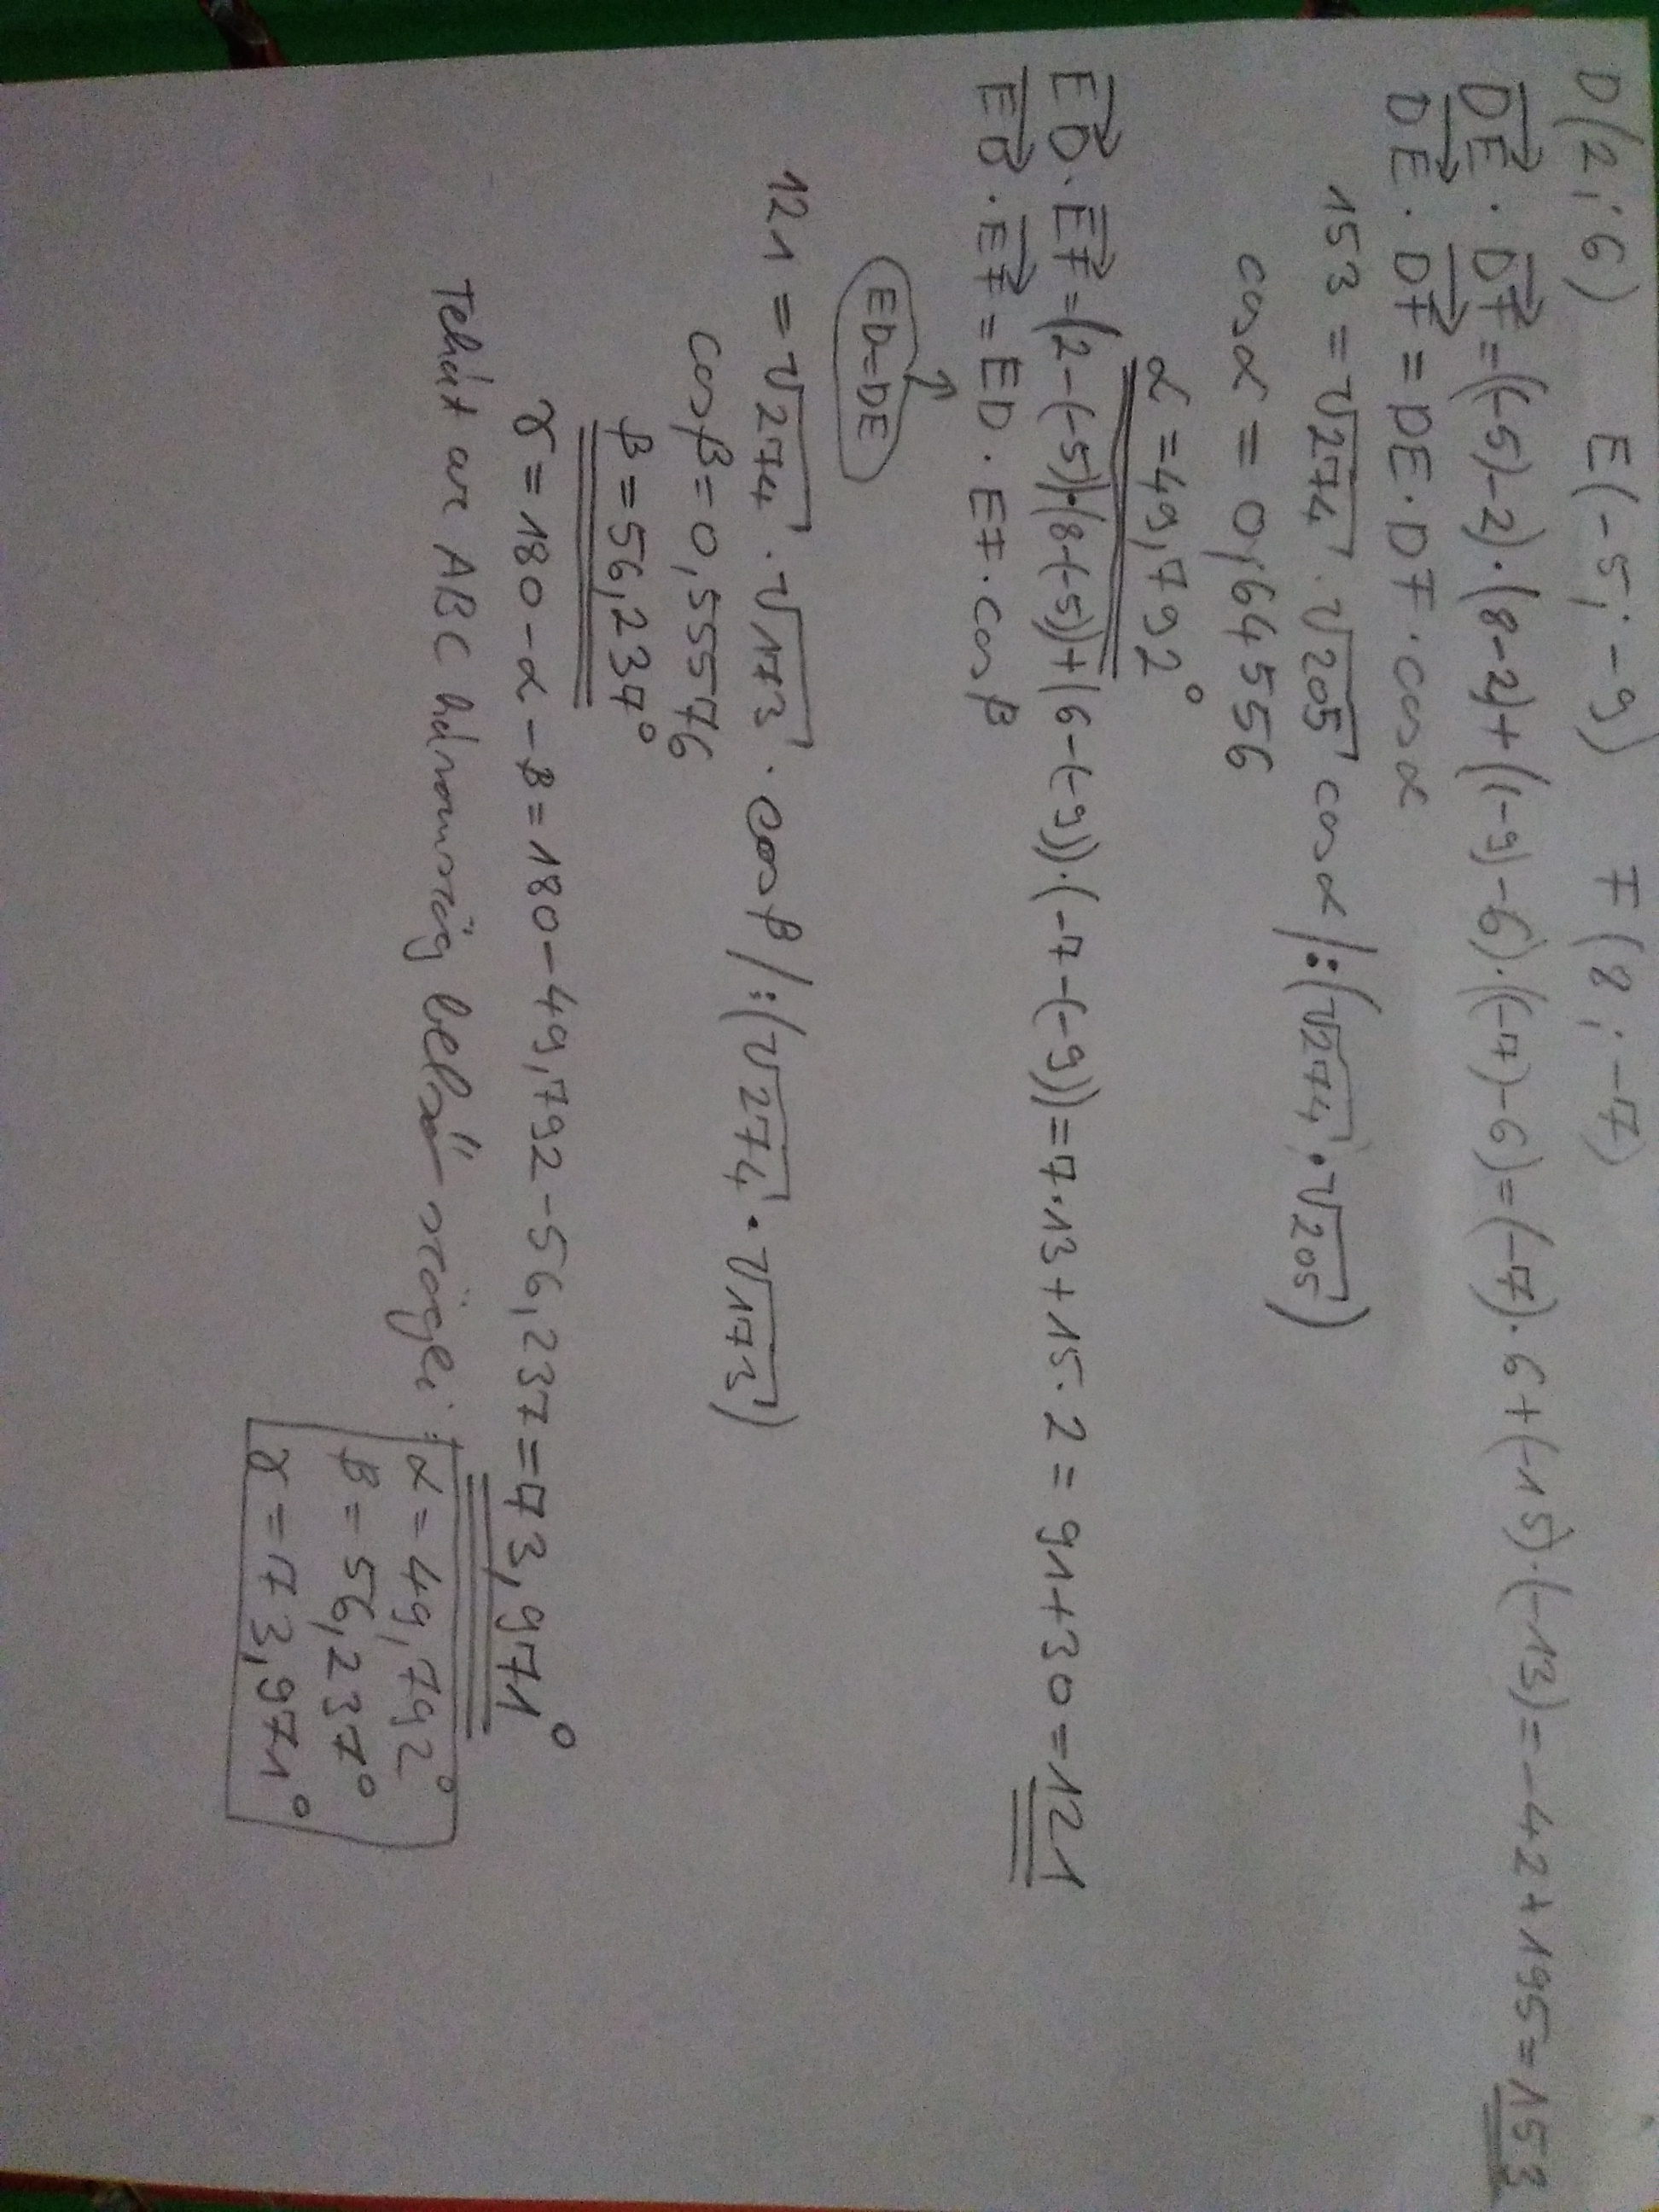 D(2;6) E(-5;-9) F(8;-7)
DE·DF=((-5)-2)·(8-2)+((-9)-6)·((-7)-6)=(-7)·6+(-15)·(-13)=-42+195=153
DE·DF=DE·DF·cosα
153=√274·√205 cosα/:(√274·√205)
cosα=0,64556
α=49,792°
ED·EF=(2-(-5))·(8-(-5))+(6-(-9))·(-7-(-9))=7·13+15·2=91+30=121
ED·EF=ED·EF·cosβ
ED=DE
121=√274·√173·cosβ/:(√274·√173)
cosβ=0,55576
β=56,237°
γ=180-α-β=180-49,792-56,237=73,971°
Tehát az ABC háromszög belső szögei: α=49,792°
β=56,237°
γ=73,971°